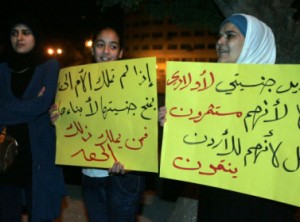 إذا لم تملك الأم الحق
بمنح جنسيتها لأبنائها
فمن يملك ذلك
الحق
جنسيتي لأولادي
لأنهم مستقرون
لأنهم للأردن
ينتمون